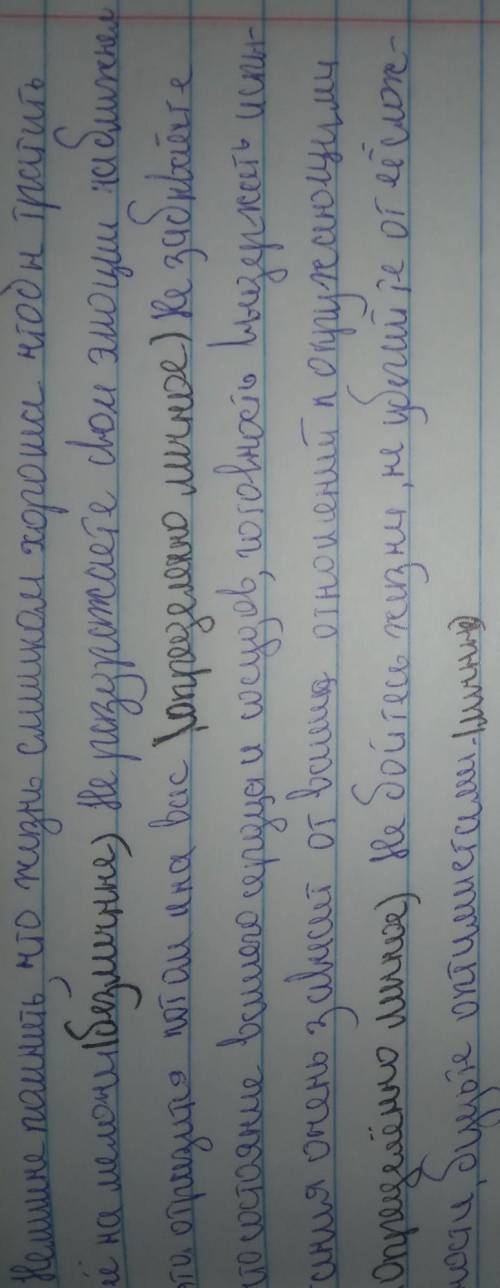 Нелишне помнить, что жизнь слишком хороша чтобы тратить
её на мелочи (безличные) Не разряжаете свои эмоции на ближнем
отразится потом и на вас (определенно личное) Не забывайте
что состояние вашего сердца и сосудов, готовность выдержать испы-
тания очень зависит от ваших отношений к окружающими
Определённо личное) Не бойтесь жизни, не убегайте от её слож-
ности, будьте оптимистами. (личные)